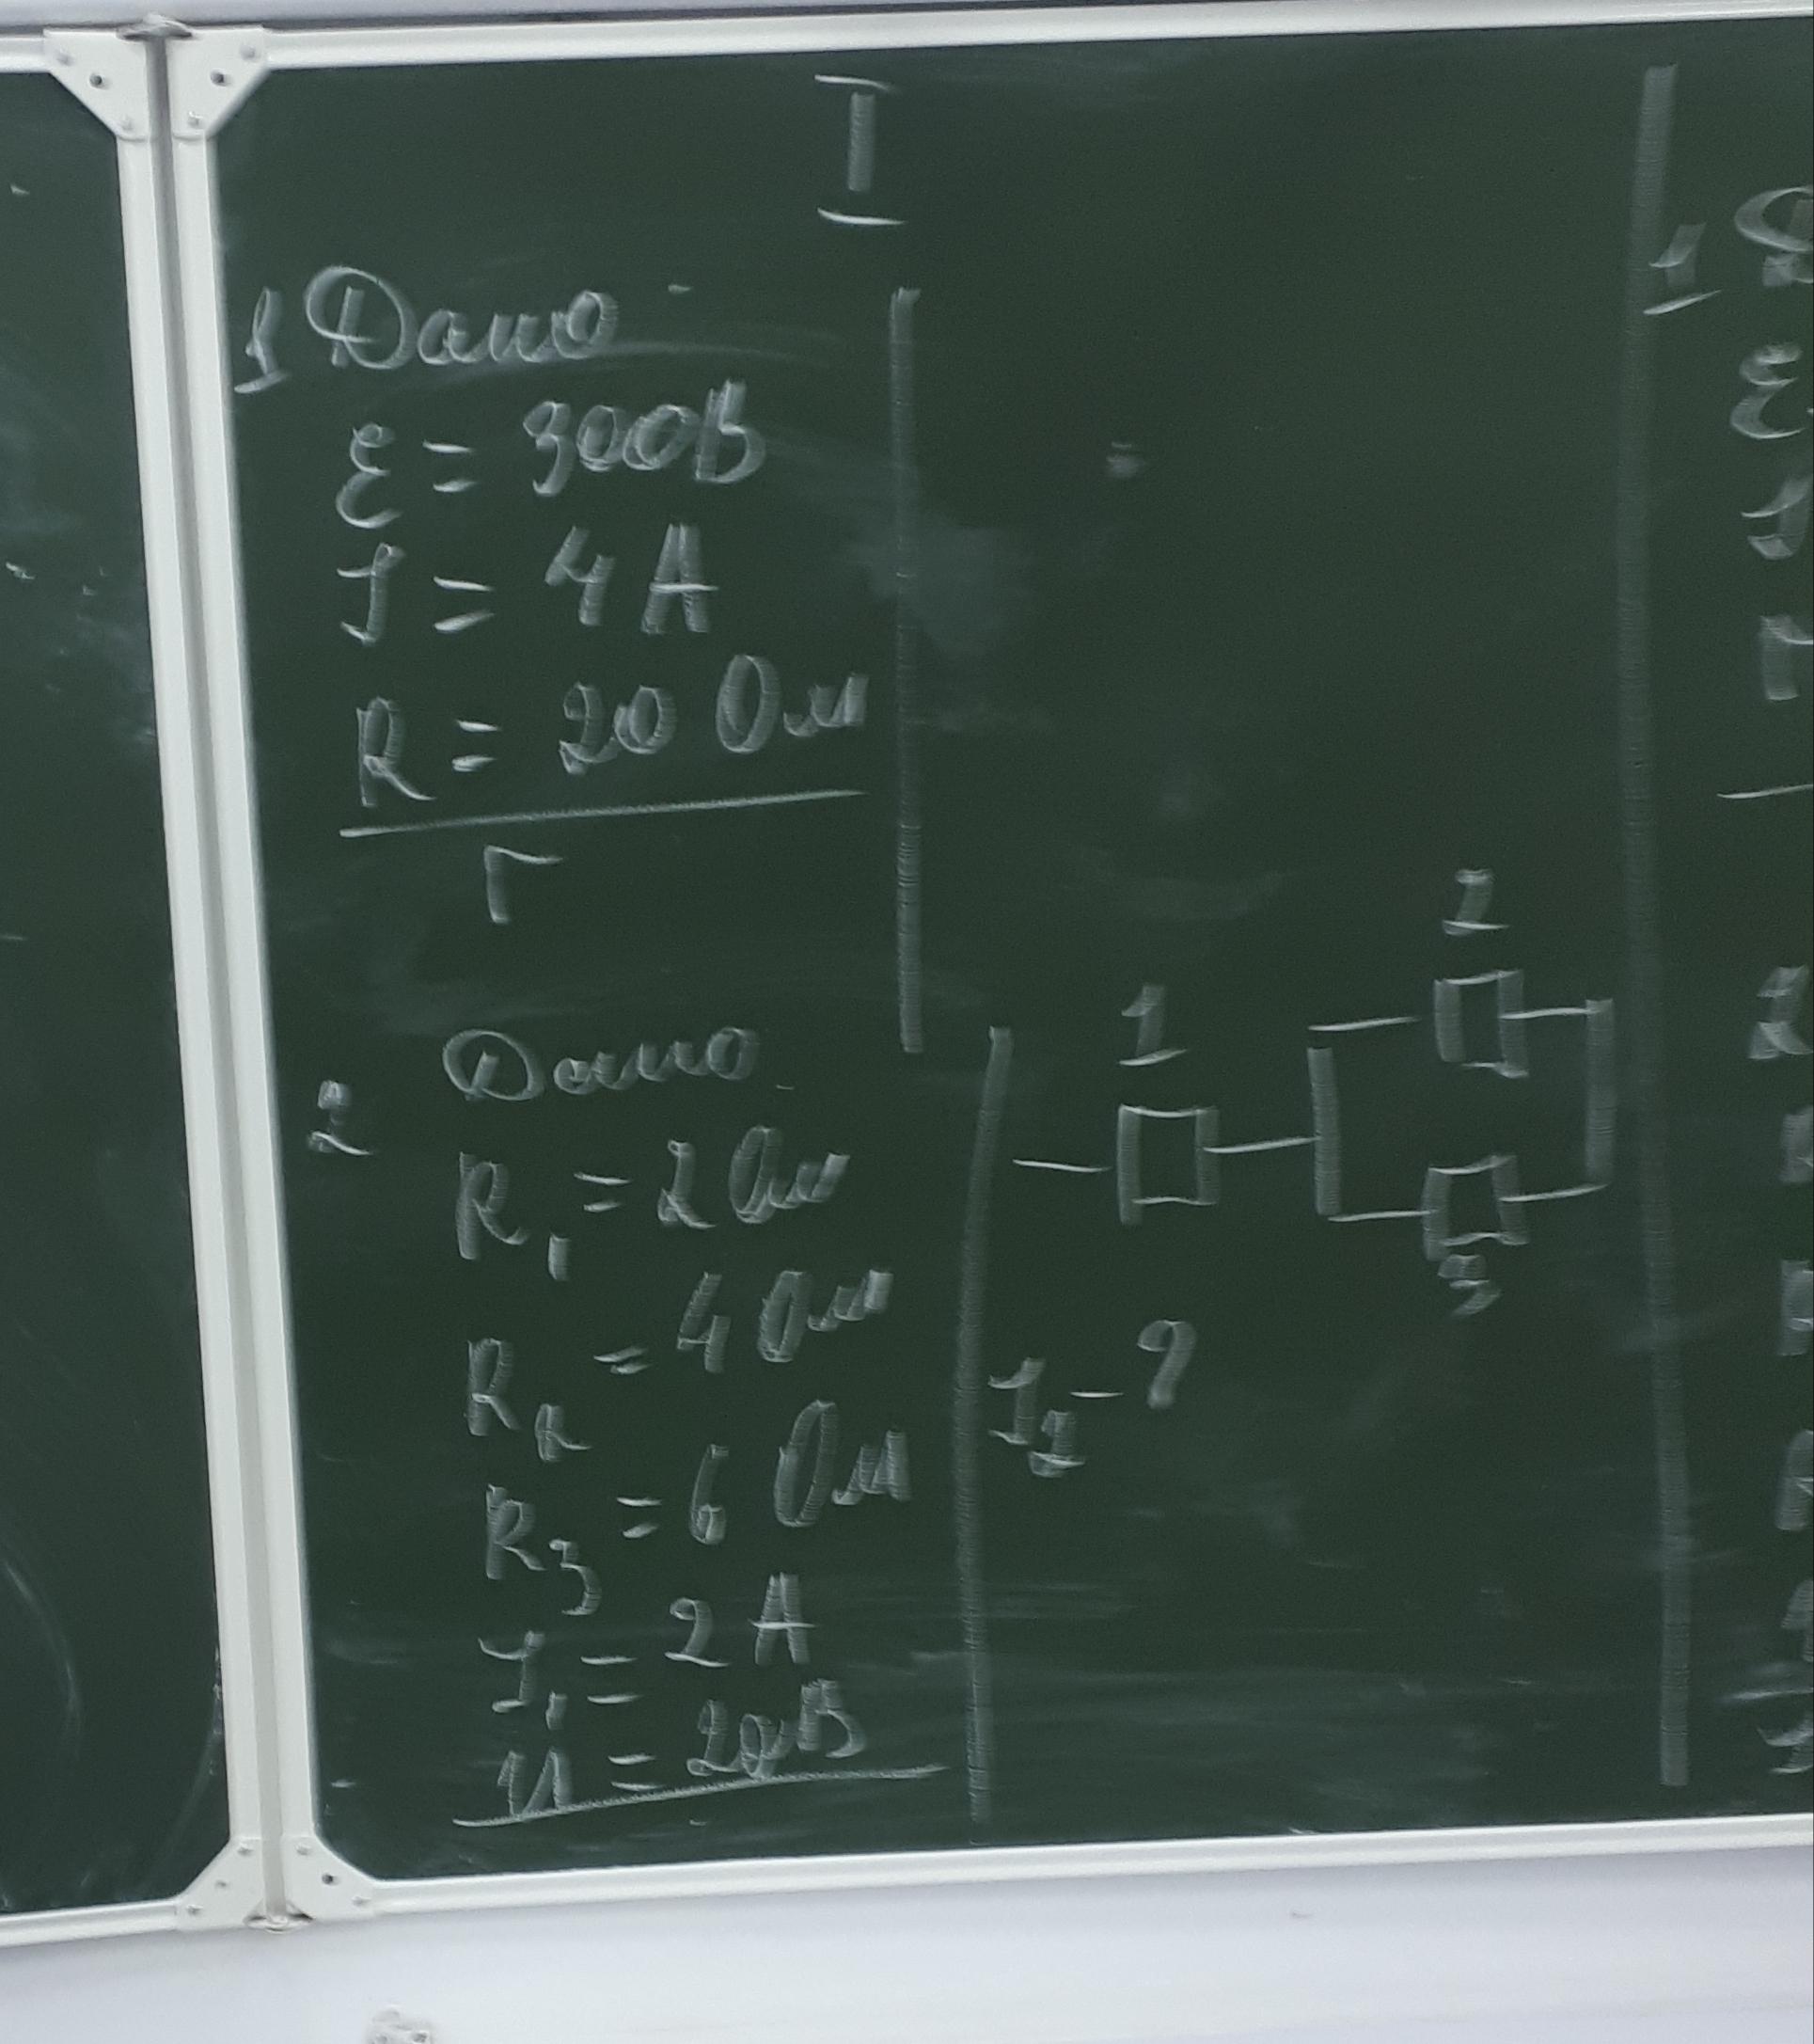 I
1 Дано
ε = 300В
I = 4 А
R = 20 Ом
r
2 Дано
R₁ = 2 Ом
R₂ = 4 Ом
R₃ = 6 Ом
I₁ = 2 А
U = 20В
1
2
3
I₂ - ?
1
ε
2